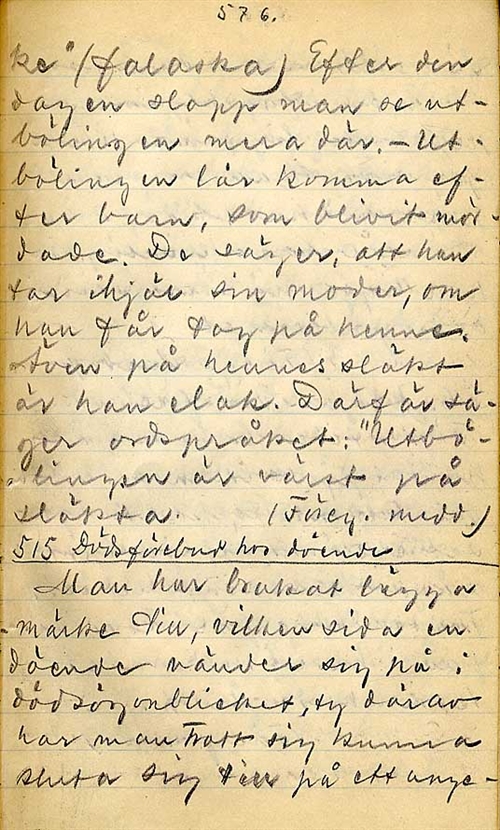 576.
ke" (falaska) Efter den
dagen slapp man se ut-
bölingen mera där. - Ut-
bölingen lär komma ef-
ter barn, som blivit mör-
dade. De säger, att han
tar ihjäl sin moder, om
han får tag på henne.
Även på hennes släkt
är han elak. Därför sä-
ger ordspråket: "Utbö-
lingen är värst på
släkta. (Föreg. medd.)
515 Dödsförebud hos döende
Man har brukat lägga
märke till, vilken sida en
döende vänder sig på i
dödsögonblicket, ty därav
har man trott sig kunna
sluta sig till på ett unge-